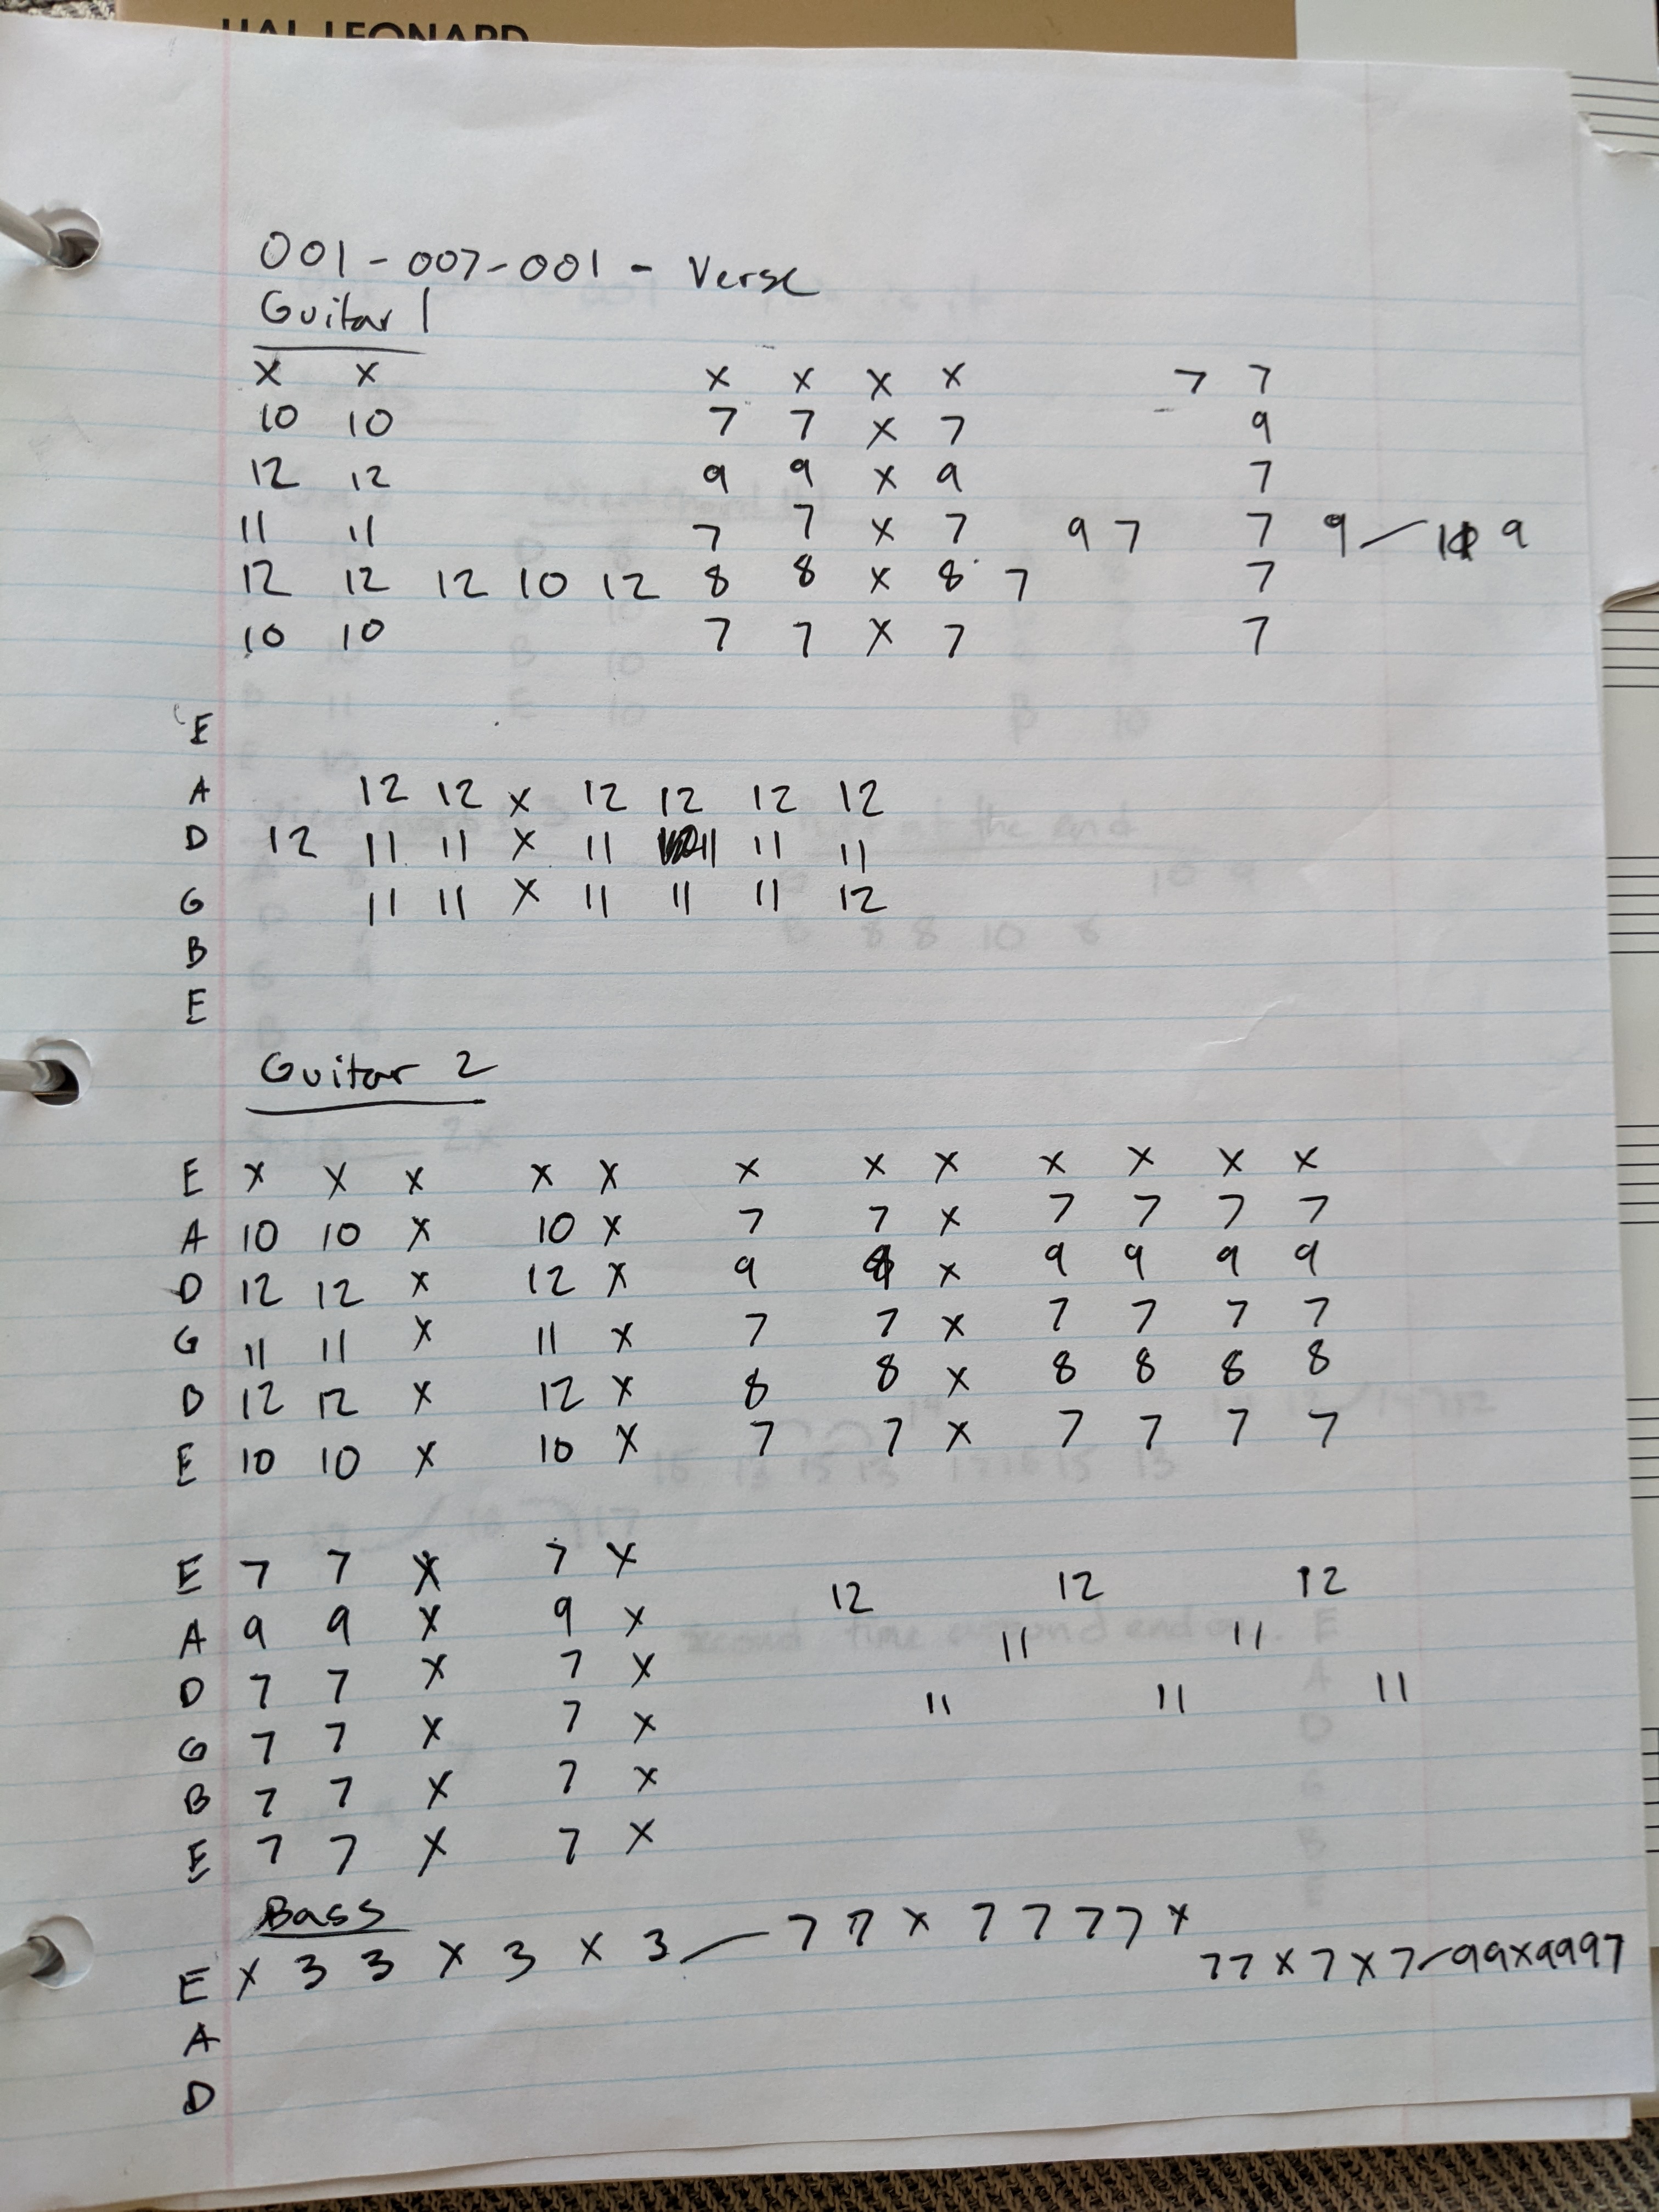 HAL LEONARD
001-007-001 - Verse
Guitar 1
x x x x x x 7 7
10 10 7 7 x 7 9
12 12 9 9 x 9 7
11 11 7 7 x 7 9 7 7 9 / 9
12 12 12 10 12 8 8 x 8 7 7
10 10 7 7 x 7 7
E
A 12 12 x 12 12 12 12
D 12 11 11 x 11 11 11 11
G 11 11 x 11 11 11 12
B
E
Guitar 2
E x x x x x x x x x x x x
A 10 10 x 10 x 7 7 x 7 7 7 7
D 12 12 x 12 x 9 9 x 9 9 9 9
G 11 11 x 11 x 7 7 x 7 7 7 7
B 12 12 x 12 x 8 8 x 8 8 8 8
E 10 10 x 10 x 7 7 x 7 7 7 7
E 7 7 x 7 x 12 12 12
A 9 9 x 9 x 11 11
D 7 7 x 7 x 11 11 11
G 7 7 x 7 x
B 7 7 x 7 x
E 7 7 x 7 x
Bass
E x 3 3 x 3 x 3 / 7 7 x 7 7 7 7 x 7 7 x 7 x 7 / 9 9 x 9 9 9 7
A
D